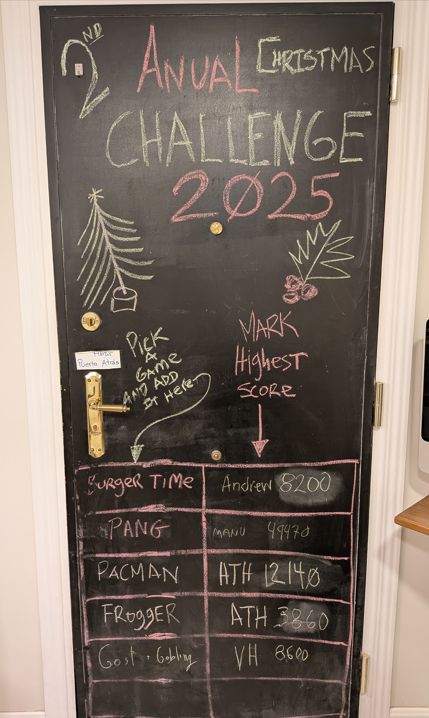 2ND
ANUAL CHRISTMAS
CHALLENGE
2025
PICK
A
GAME
AND ADD
IT HERE
MARK
HigHEST
SCORE
Puerta Atrás
BURGER TIME Andrew 8200
PANG MANU 49470
PACMAN ATH 12140
FROGGER ATH 3860
Gost & Goblins VH 8600